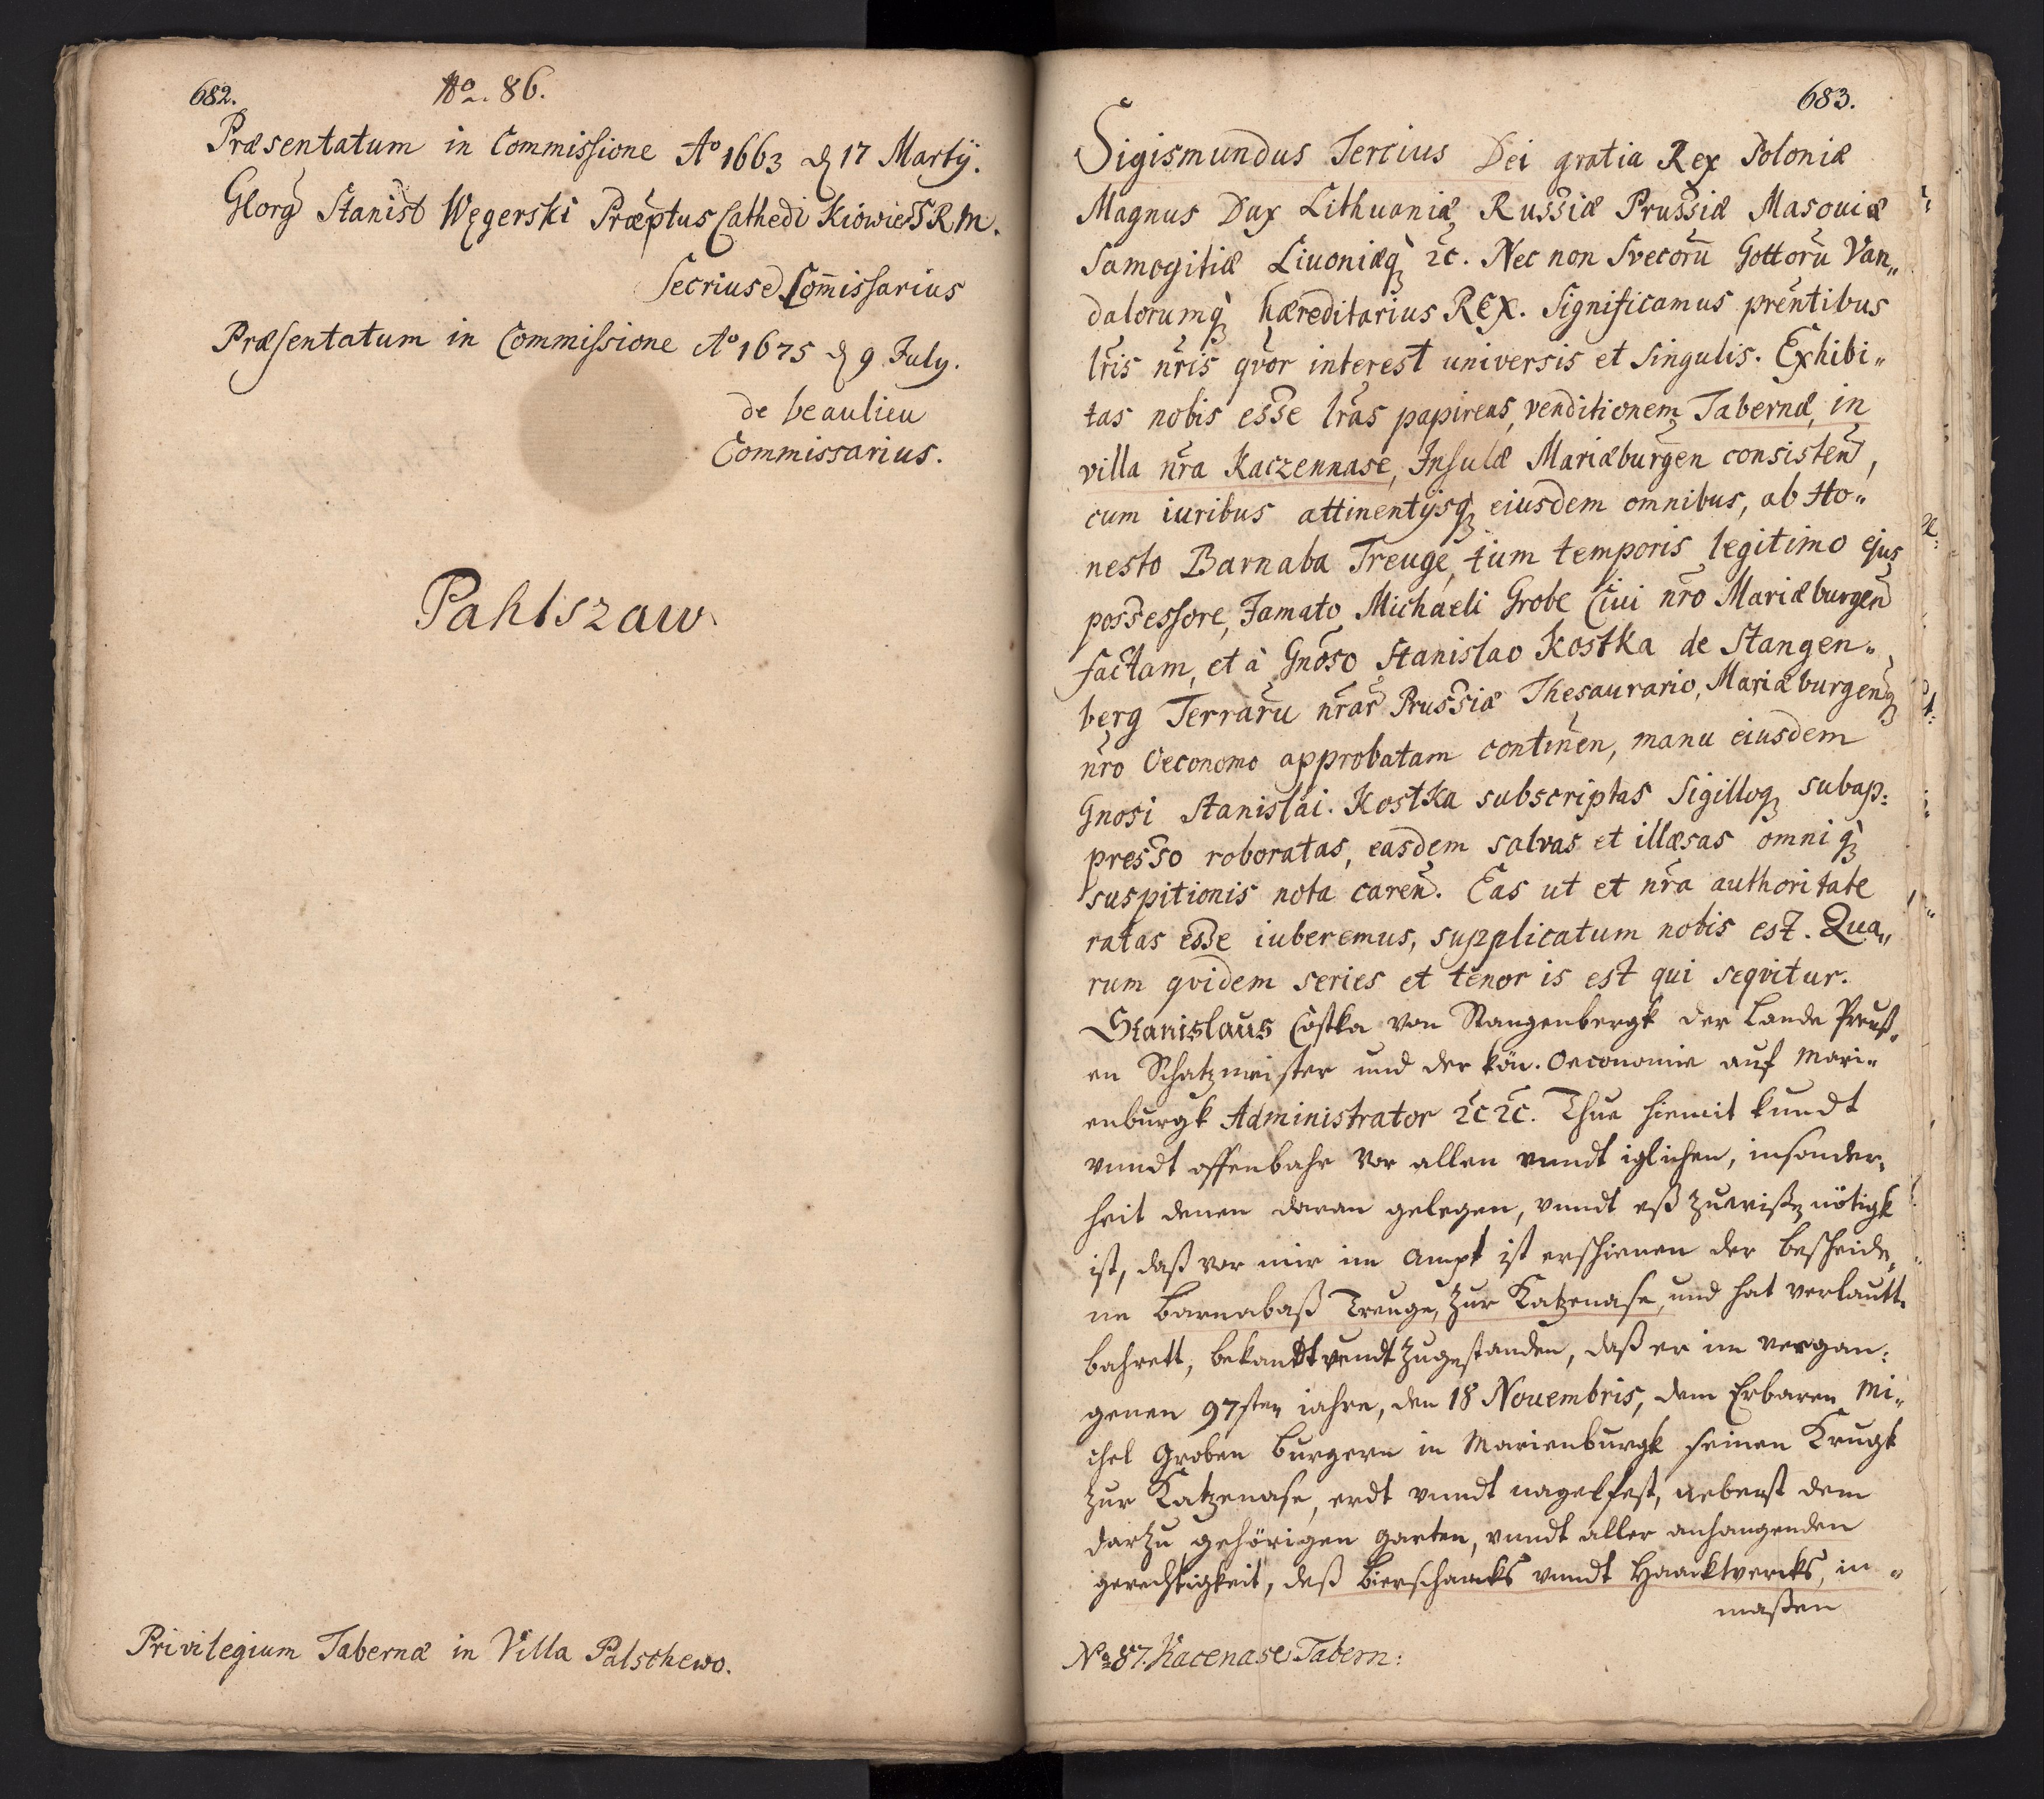 682.
No. 86.
Præsentatum in Commissione Ao 1663 d 17 Martij.
Georg Stanist Węgerski Præptus Cathedi Kiowien S R M.
Secriusd Com̄issarius
Præsentatum in Commissione Ao 1675 d 9 July.
de beaulieu
Commissarius.
Pahlszaw
Privilegium Tabernæ in Villa Palschewo.
683.
Sigismundus Tercius Dei gratia Rex Poloniæ
Magnus Dux Lithuaniæ Russiæ Prussiæ Masouiæ
Samogitiæ Liuoniæq ꝛc. Nec non Svecorū Gottorū Van„
dalorumq hæreditarius Rex. Significamus prēntibus
lr̄is nr̄is qvor interest universis et singulis. Exhibi„
tas nobis esse lr̄as papireas, venditionem Tabernæ, in
villa nr̄a Kaczennase, Insulæ Mariæburgen consisten,
cum iuribus attinentijsq eiusdem omnibus, ab Ho„
nesto Barnaba Treuge, tum temporis legitimo ejus
possessore, Famato Michaeli Grobe Ciui nr̄o Mariæburgen
factam, et à Gnoso Stanislao Kostka de Stangen„
berg Terrarū nr̄ar Prussiæ Thesaurario, Mariæburgenq
nr̄o Oeconomo approbatam continen, manu eiusdem
Gnosi Stanislai Kostka subscriptas Sigilloq subap:
presso roboratas, easdem salvas et illæsas omniq
suspitionis nota caren. Eas ut et nr̄a authoritate
ratas esse iuberemus, supplicatum nobis est. Qua„
rum qvidem series et tenor is est qui seqvitur.
Stanislaus Costka von Stangenbergk der Lande Preuß„
en Schatzmeister und der kön. Oeconomie auf Mari„
enburgk Administrator ꝛc ꝛc. Thue hiemit kundt
vnndt offenbahr vor allen vnndt iglichen, insonder„
heit denen daran gelegen, vnndt eß zuwißen nötigk
ist, daß vor mir im Ampt ist erschienen der bescheide„
ne Barnabaß Treuge, zur Katzenase, und hat verlautt„
bahrett, bekandt vnndt zugestanden, daß er im vergan:
genen 97sten iahre, den 18 Nouembris, dem Erbaren Mi„
chel Groben burgern in Marienburgk seinen Krugk
zur Katzenase, erdt vnndt nagelfest, nebenst dem
dartzu gehörigen garten, vnndt aller anhangenden
gerechtigkeit, deß bierschancks vnndt Haacktwercks, in„
maßen
No 87. Kacenase Tabern: